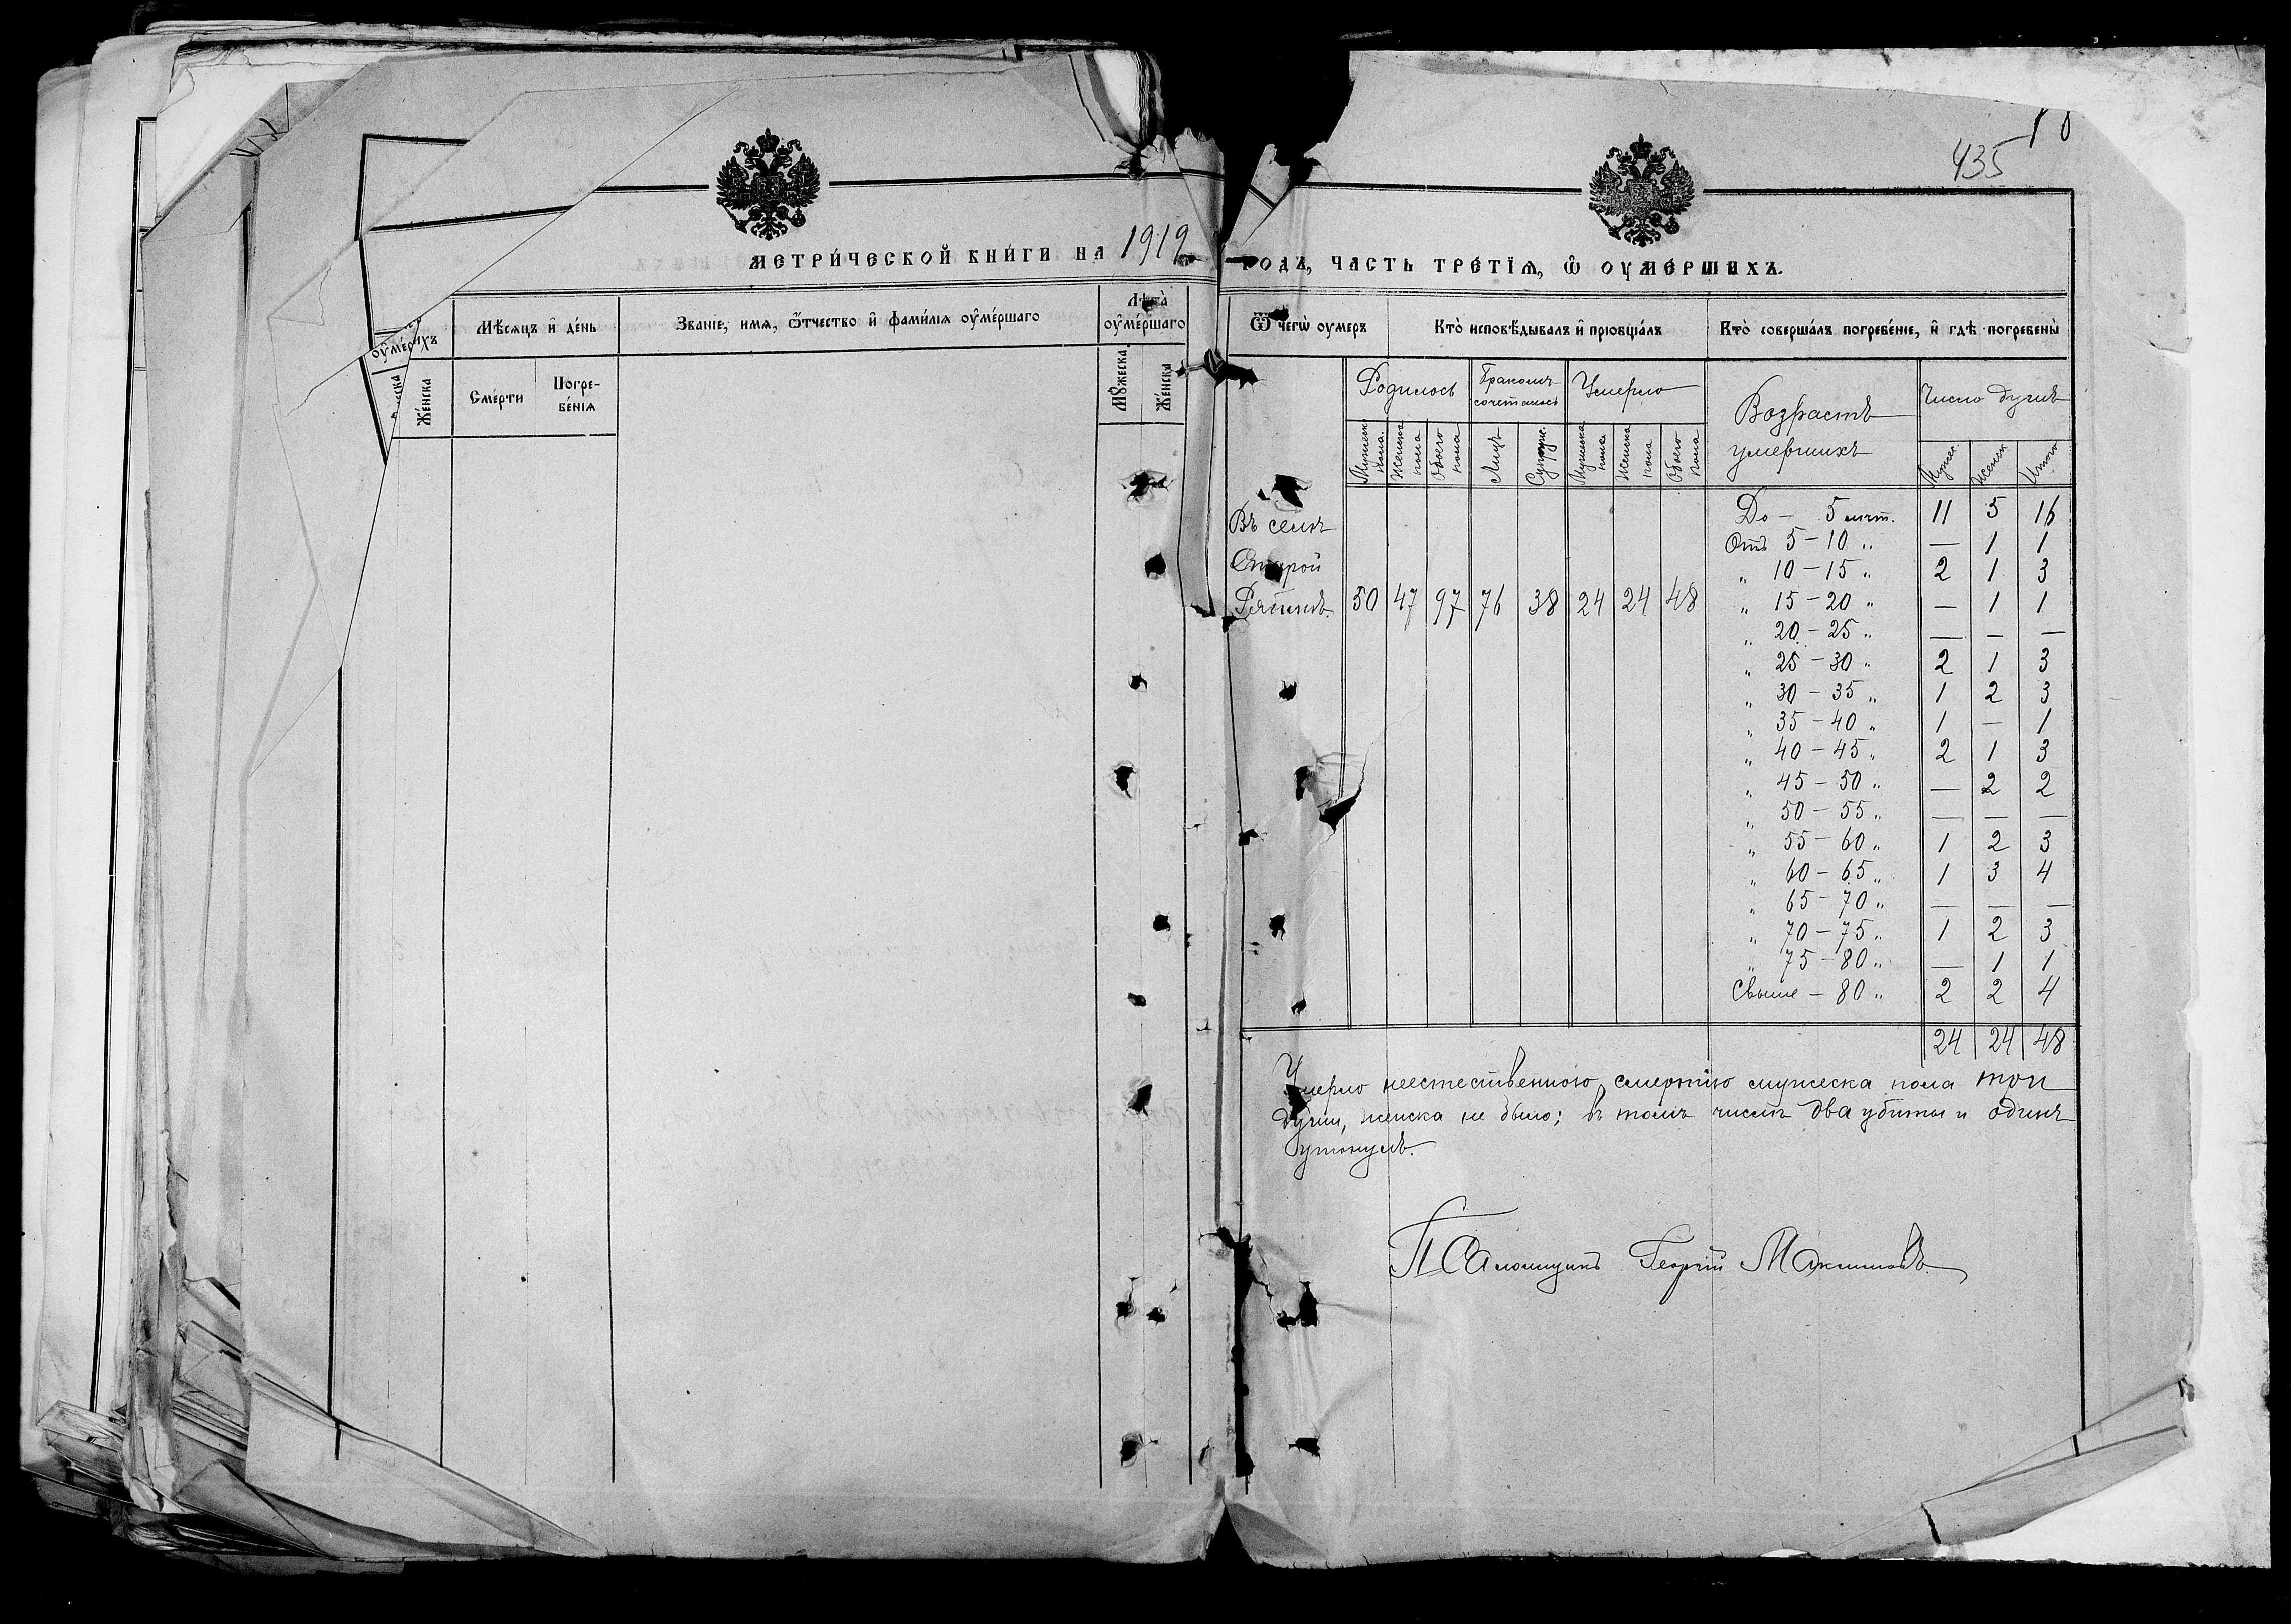 435
МЕТРИ́ЧЕСКОЙ КНИ́ГИ НА 1912
ГОДЪ, ЧАСТЬ ТРЕ́ТІѦ, Ѡ҆ ОУМЕРШИХЪ.
Мѣ́сѧцъ и҆ де́нь
Сме́рти
Погре-
бе́нїѧ
Же́нска
Зва́нїе, и́мѧ, ѻ҆́тчество и҆ фами́лїѧ оу҆ме́ршаго
Лѣ́та
оу҆ме́ршаго
Мꙋ́жеска
Же́нска
Ѿ чегѡ̀ оумеръ
Кто̀ исповѣ́дывалъ и҆ прїѻбща́лъ
Кто̀ соверша́лъ погребе́нїе, и҆ гдѣ̀ погребены̀
Родилось
Бракомъ
сочеталось
Умерло
Возрастъ
умершихъ
Число душъ
Мужеск. пола.
Женска пола
Обоего пола
Лицъ
Супруж.
Мужска пола
Женска пола
Обоего пола
Мужес.
Женск.
Итого
Въ селѣ
Старой
Рябинѣ. 50 47 97 76 38 24 24 48
До – 5 лѣт. 11 5 16
Отъ 5 – 10 „ — 1 1
„ 10 – 15 „ 2 1 3
„ 15 – 20 „ — 1 1
„ 20 – 25 „ — — —
„ 25 – 30 „ 2 1 3
„ 30 – 35 „ 1 2 3
„ 35 – 40 „ 1 — 1
„ 40 – 45 „ 2 1 3
„ 45 – 50 „ — 2 2
„ 50 – 55 „ — — —
„ 55 – 60 „ 1 2 3
„ 60 – 65 „ 1 3 4
„ 65 – 70 „ — — —
„ 70 – 75 „ 1 2 3
„ 75 – 80 „ — 1 1
Свыше – 80 „ 2 2 4
24 24 48
Умерло неестественною смертію мужеска пола три
души, женска не было; въ томъ числѣ два убиты и одинъ
утонулъ.
Псаломщикъ Георгій Максимовъ